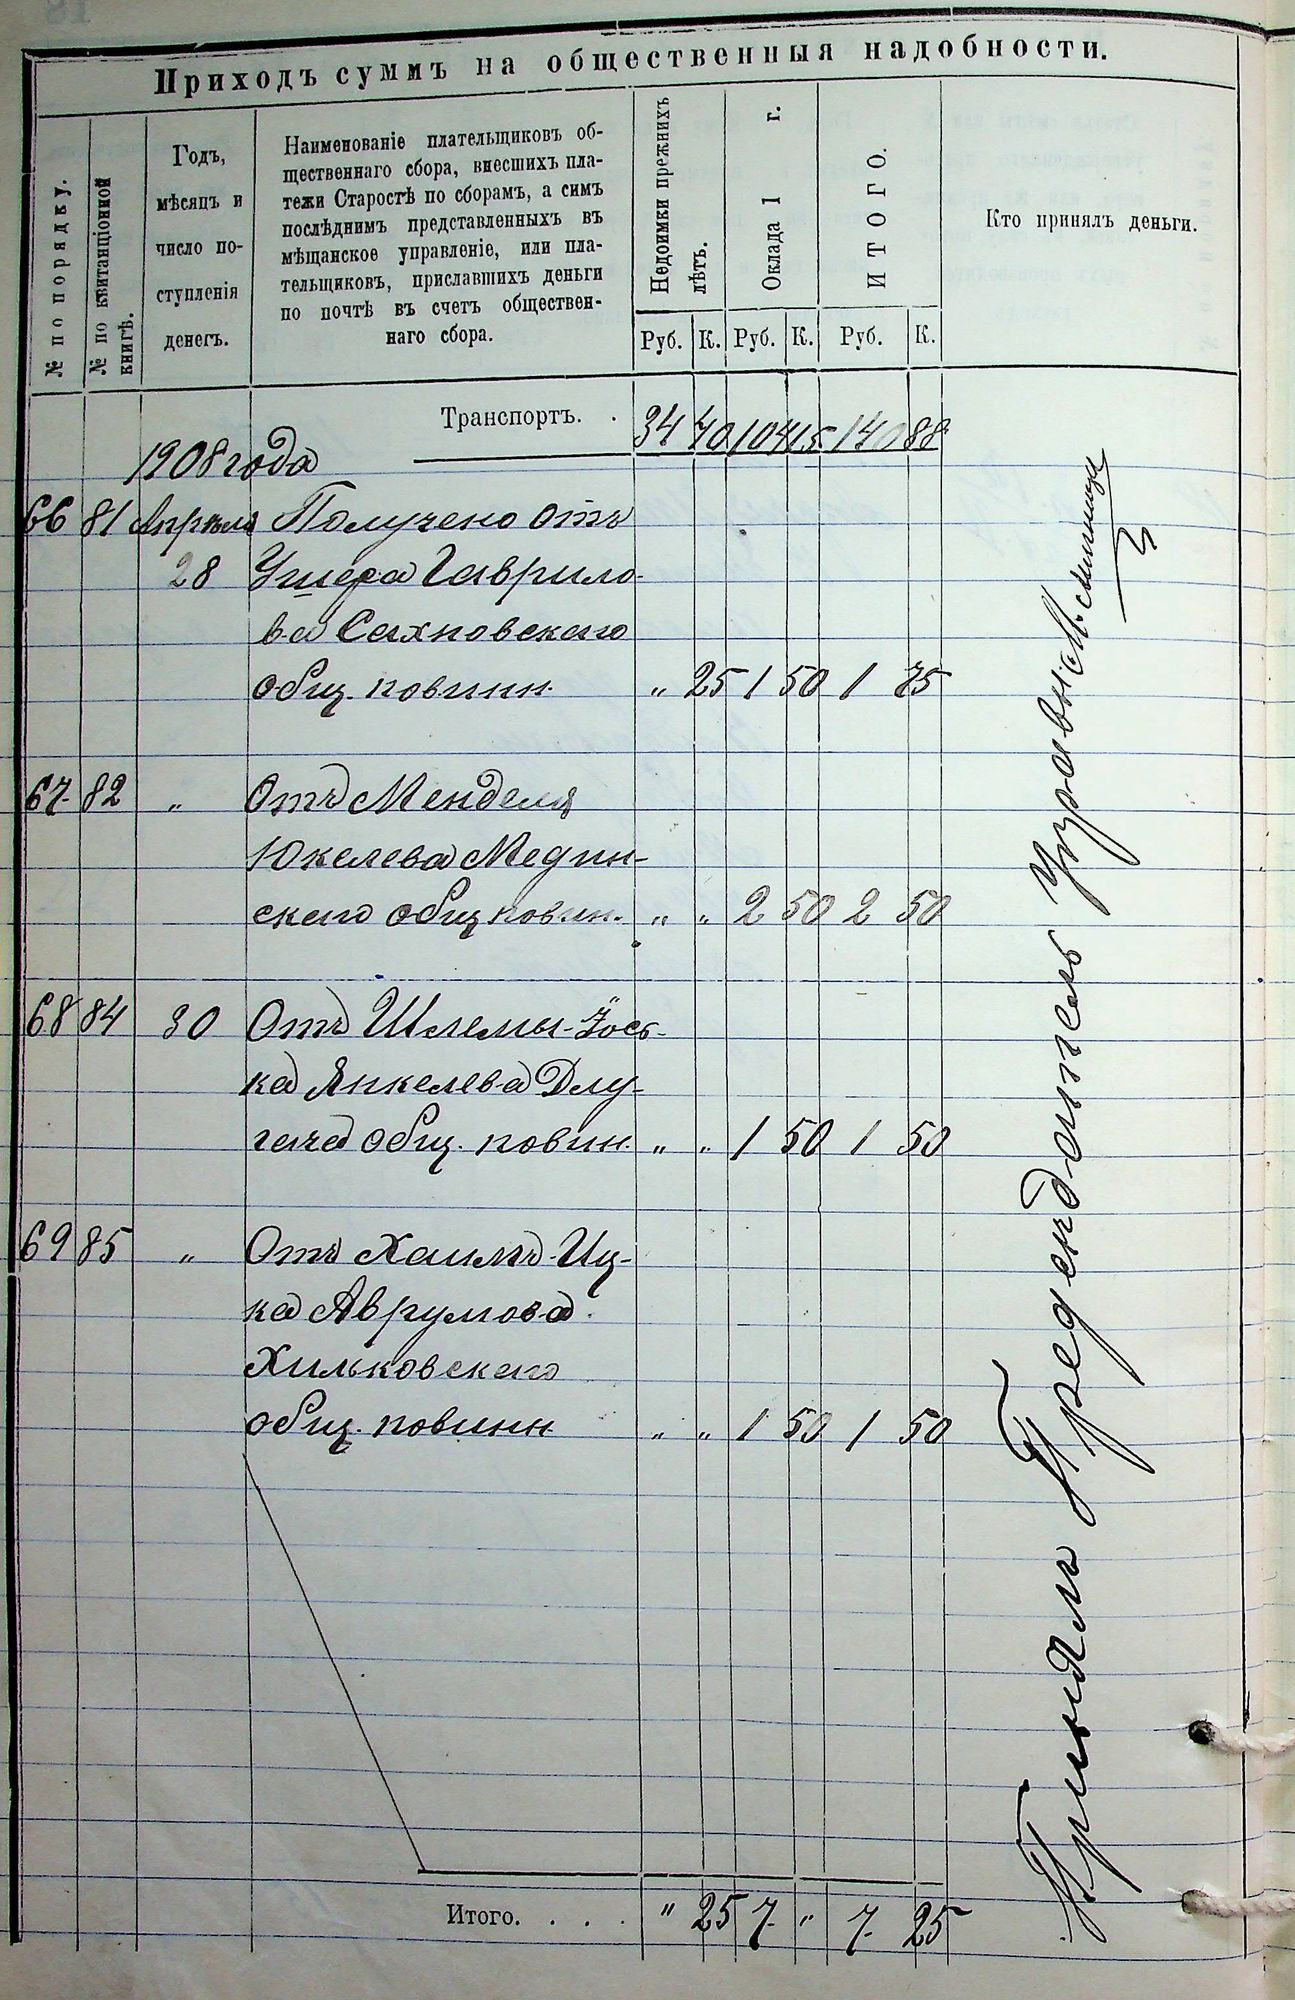 Приходъ суммъ на общественныя надобности.
№ по порядку.
№ по квитанціонной книгѣ.
Годъ,
мѣсяцъ и
число по-
ступленія
денегъ.
Наименованіе плательщиковъ об-
щественнаго сбора, внесшихъ пла-
тежи Старостѣ по сборамъ, а симъ
послѣднимъ представленныхъ въ
мѣщанское управленіе, или пла-
тельщиковъ, приславшихъ деньги
по почтѣ въ счетъ обществен-
наго сбора.
Недоимки прежнихъ лѣтъ.
Оклада 1 г.
ИТОГО.
Кто принялъ деньги.
Руб. К. Руб. К. Руб. К.
Транспортъ. . 34 70 104 15 140 88
1908 года
66 81 Апрѣля Получено отъ
28 Ушера Гаврило-
ва Сахновскаго
общ. повинн. „ 25 1 50 1 75
67 82 „ Отъ Менделя
Юкелева Медин-
скаго общ повин. „ „ 2 50 2 50
68 84 30 Отъ Шлемы-Йось-
ка Янкелева Длу-
гача общ. повин. „ „ 1 50 1 50
69 85 „ Отъ Хаимъ-Иц-
ка Аврумова
Хильковскаго
общ. повинн „ „ 1 50 1 50
Итого. . . . „ 25 7 „ 7 25
Принялъ Предсѣдатель Управы